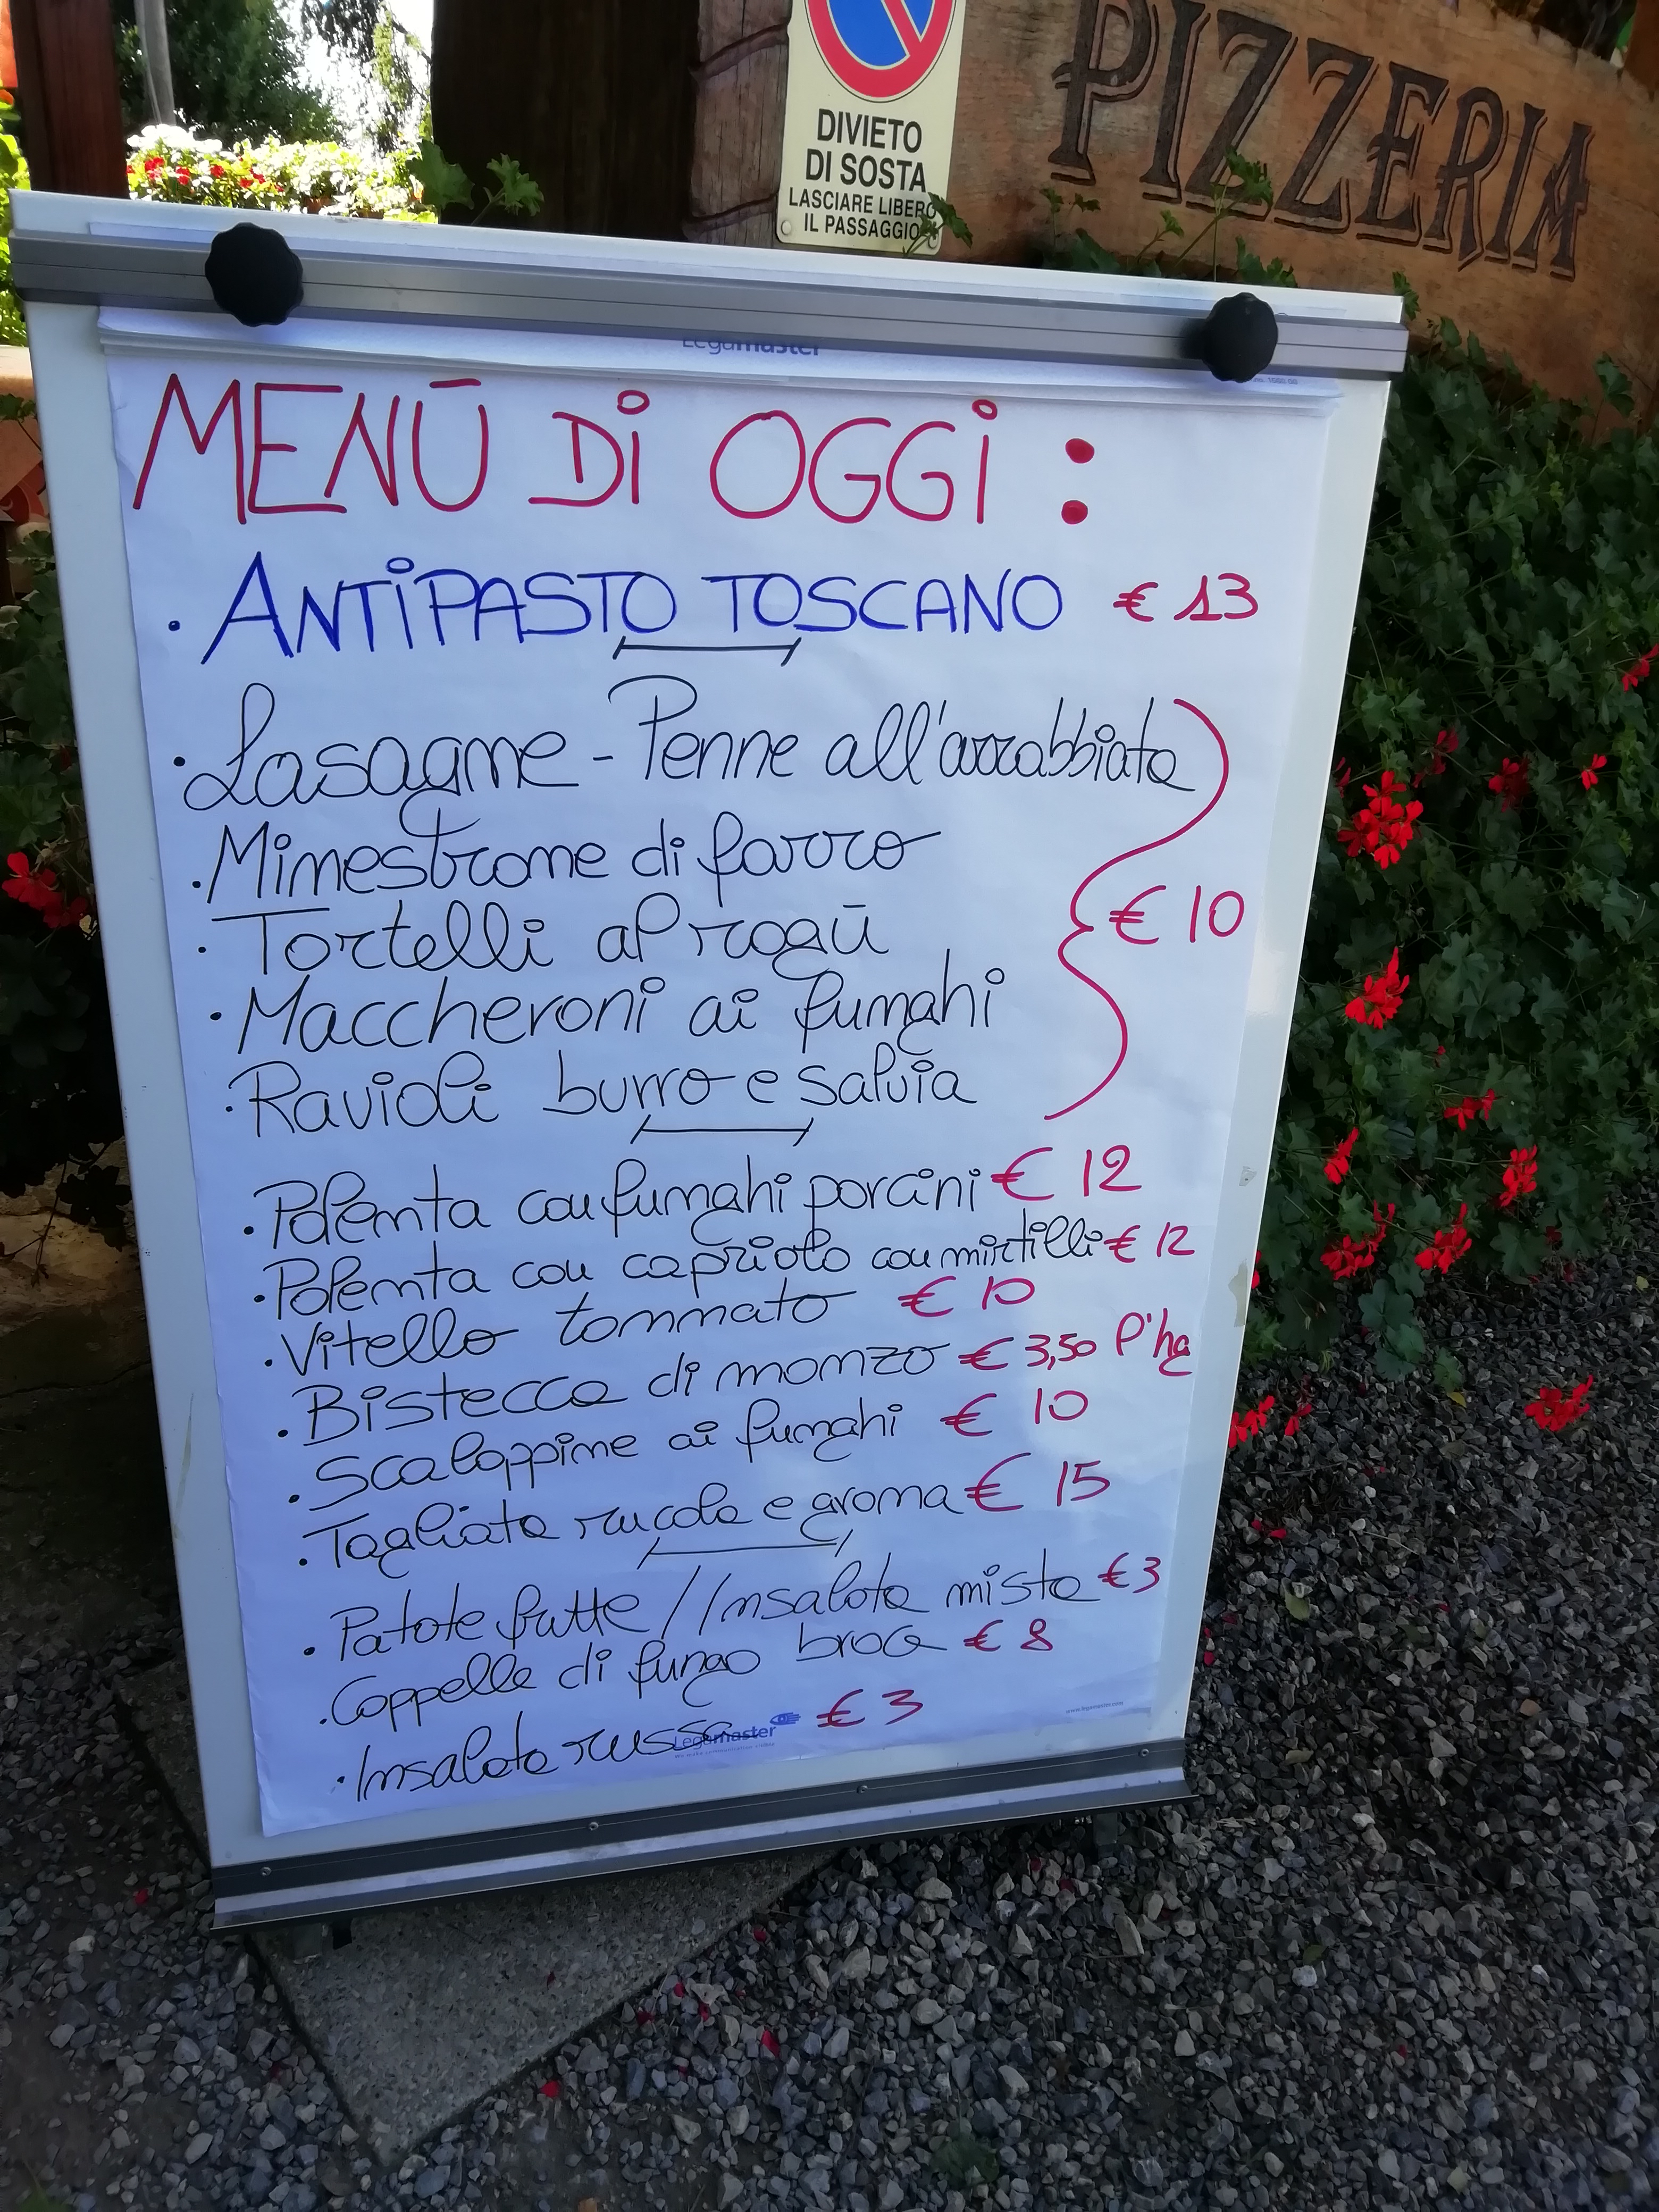 PIZZERIA
DIVIETO
DI SOSTA
LASCIARE LIBERO
IL PASSAGGIO
Legamaster
MENŪ Di OGGi :
. ANTiPASTO TOSCANO € 13
. Lasagne - Penne all'arrabbiata
. Minestrone di farro
. Tortelli al ragū
. Maccheroni ai funghi
. Ravioli burro e salvia
€ 10
. Polenta con funghi porcini € 12
. Polenta con capriolo con mirtilli € 12
. Vitello tonnato € 10
. Bistecca di manzo € 3,50 l'hg
. Scaloppine ai funghi € 10
. Tagliata rucola e aroma € 15
. Patate fritte // Insalata mista € 3
. Cappelle di fungo brace € 8
. Insalata russa € 3
Legamaster
www.legamaster.com